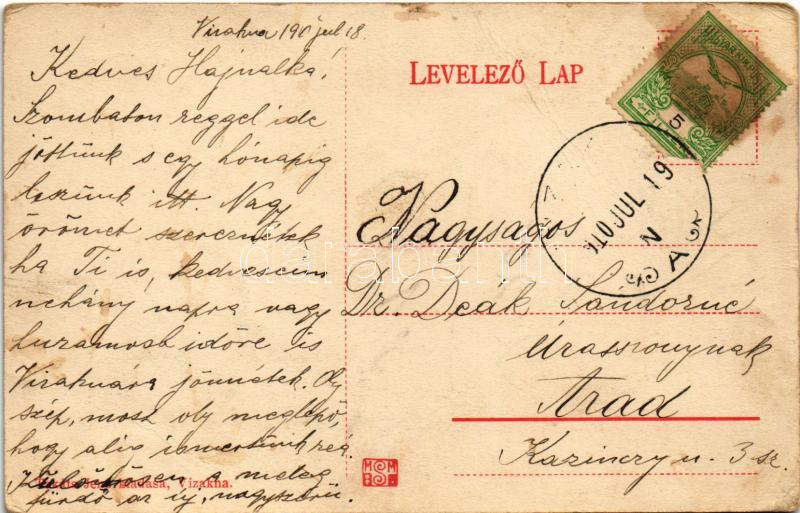 Vizakna 190 jul 18.
Kedves Hajnalka!
Szombaton reggel ide
jöttünk s egy hónapig
leszünk itt. Nagy
örömet szereznétek
ha Ti is, kedveseim
néhány napra vagy
huzamosb időre is
Vizaknára jönnétek. Oly
szép, most oly meglepő,
hogy alig ismertünk reá.
Különösen a meleg
fürdő az új, nagyszerű.
kiadása, Vizakna.
LEVELEZŐ LAP
5
910 JUL 19
N
A
Nagyságos
Dr. Deák Sándorné
Úrasszonynak
Arad
Kazinczy u. 3 sz.
darabanth